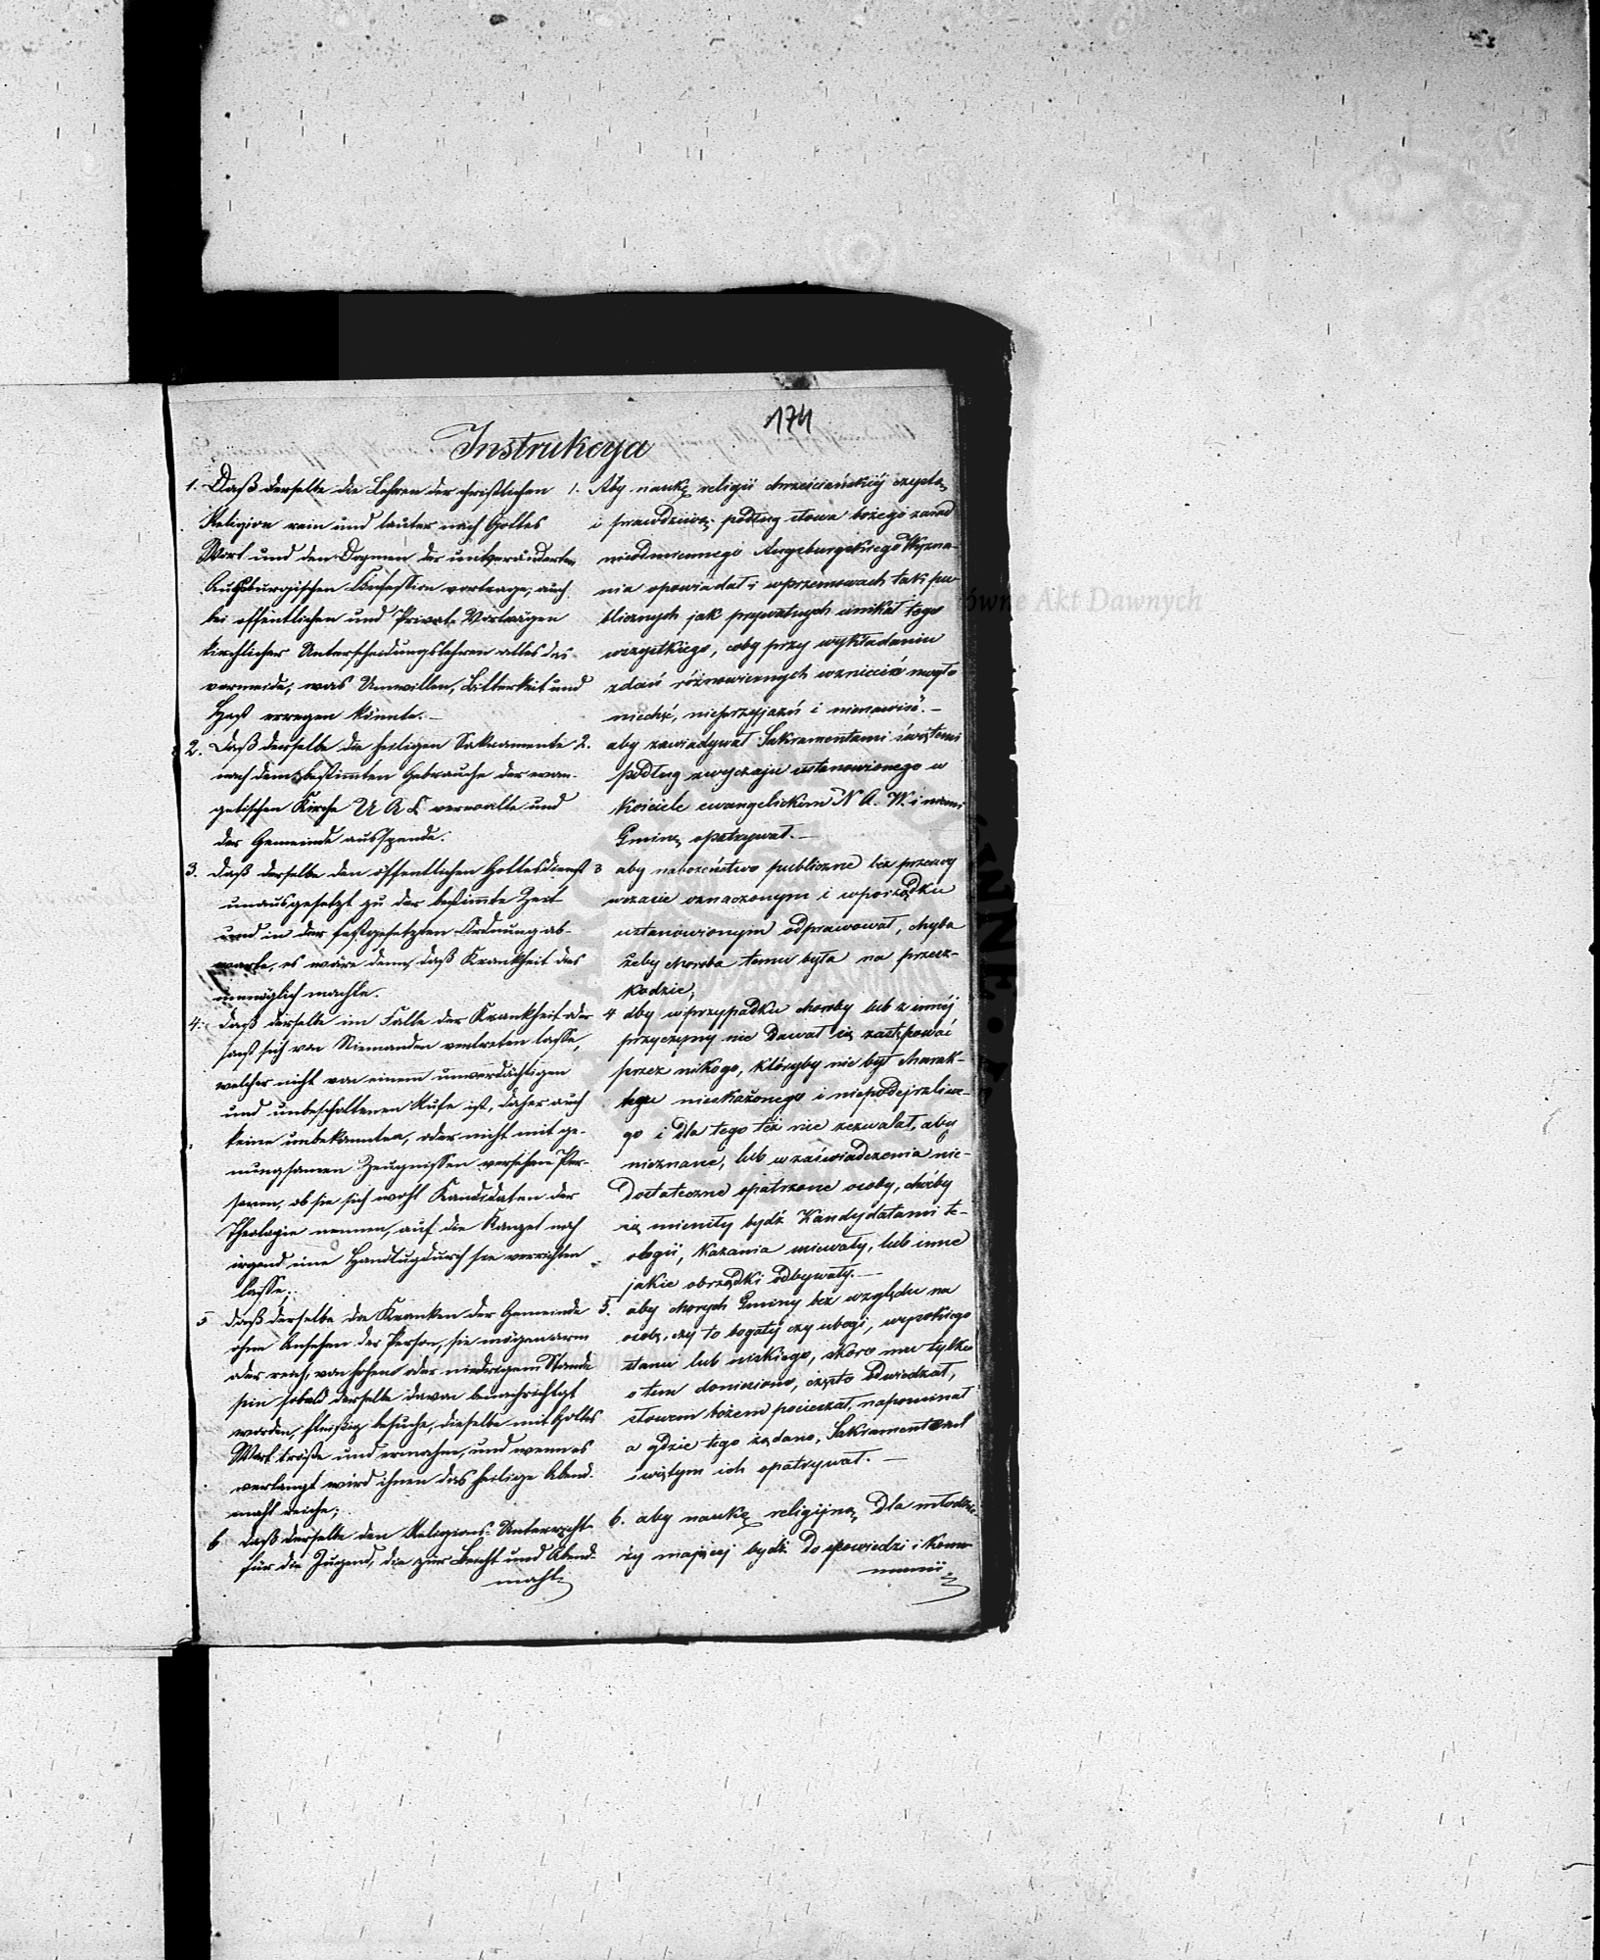 174
Instrukcya
1. Daß derselbe die Lehren der christlichen
Religion rein und lauter nach Gottes
Wort und den Dogmen der unveränderten
Augsburgischen Confession vortrage, auch
bei öffentlichen und Privat-Vorträgen
kirchlicher Unterscheidungslehren alles das
vermeide, was Unwillen, Bitterkeit und
Haß erregen könnte. –
2. Daß derselbe die heiligen Sakramente
nach dem bestimmten Gebrauche der evan-
gelischen Kirche U A C verwalte und
der Gemeinde ausspende.
3. daß derselbe den öffentlichen Gottesdienst
unausgesetzt zu der bestimmte Zeit
und in der festgesetzten Ordnung ab-
warte, es wäre denn, daß Krankheit dies
unmöglich machte.
4. daß derselbe im Falle der Krankheit oder
sonst sich von Niemanden vertreten lasse,
welcher nicht von einem unverdächtigen
und unbescholtenen Rufe ist, daher auch
keine unbekannten, oder nicht mit ge-
nungsamen Zeugnissen versehene Per-
sonen, ob sie sich wohl Kandidaten der
Theologie nennen, auf die Kanzel noch
irgend eine Handlug durch sie verrichten
lasse;
5 daß derselbe die Kranken der Gemeinde
ohne Ansehen der Person, sie mögen arm
oder reich, von hohem oder niedrigem Stande
sein sobald derselbe davon benachrichtgt
worden, fleißig besuche, dieselbe mit Gottes
Wort tröste und ermahne, und wenn es
verlangt wird ihnen das heilige Abend-
mahl reiche;
6 daß derselbe den Religions-Unterricht
für die Jugend, die zur Beicht und Abend-
mahl
1. Aby naukę religii chrześciańskiéj czystą
i prawdziwą podług słowa bożego i zasad
nieodmiennego Augsburgskiego Wyzna-
nia opowiadał i w przemowach tak pu-
blicznych jak prywatnych unikał tego
wszystkiego, coby przy wykładaniu
zdań różnowiernych wzniecić mogło
niechęć, nieprzyjaźń i nienawiść. –
2. aby zawiadywał Sakramentami świętemi
podług zwyczaju ustanowionego w
kościele ewangelickim N A. W. i niemi
Gminę opatrywał. –
3 aby nabożeństwo publiczne bez przerwy
w czasie oznaczonym i w porządku
ustanowionym odprawował, chyba
żeby choroba temu była na przesz-
kodzie;
4 aby w przypadku choroby lub z innéj
przyczyny nie dawał się zastępować
przez nikogo, któryby nie był charak-
teru nieskażonego i niepodejrzliwe-
go i dla tego też nie zezwalał, aby
nieznane, lub w zaświadczenia nie-
dostatecznie opatrzone osoby, choćby
się mieniły bydź Kandydatami te-
ologii, kazania miewały, lub inne
jakie obrządki odbywały. –
5. aby chorych Gminy bez względu na
osobę, czy to bogaty czy ubogi, wysokiego
stanu lub niskiego, skoro mu tylko
o tem doniesiono, często odwiedzał,
słowem bożem pocieszał, napominał
a gdzie tego żądano, Sakramentem
świętym ich opatrywał. –
6. aby naukę religijną dla młodzie-
ży mającej bydź do spowiedzi i komu-
munii
Główne Akt Dawnych